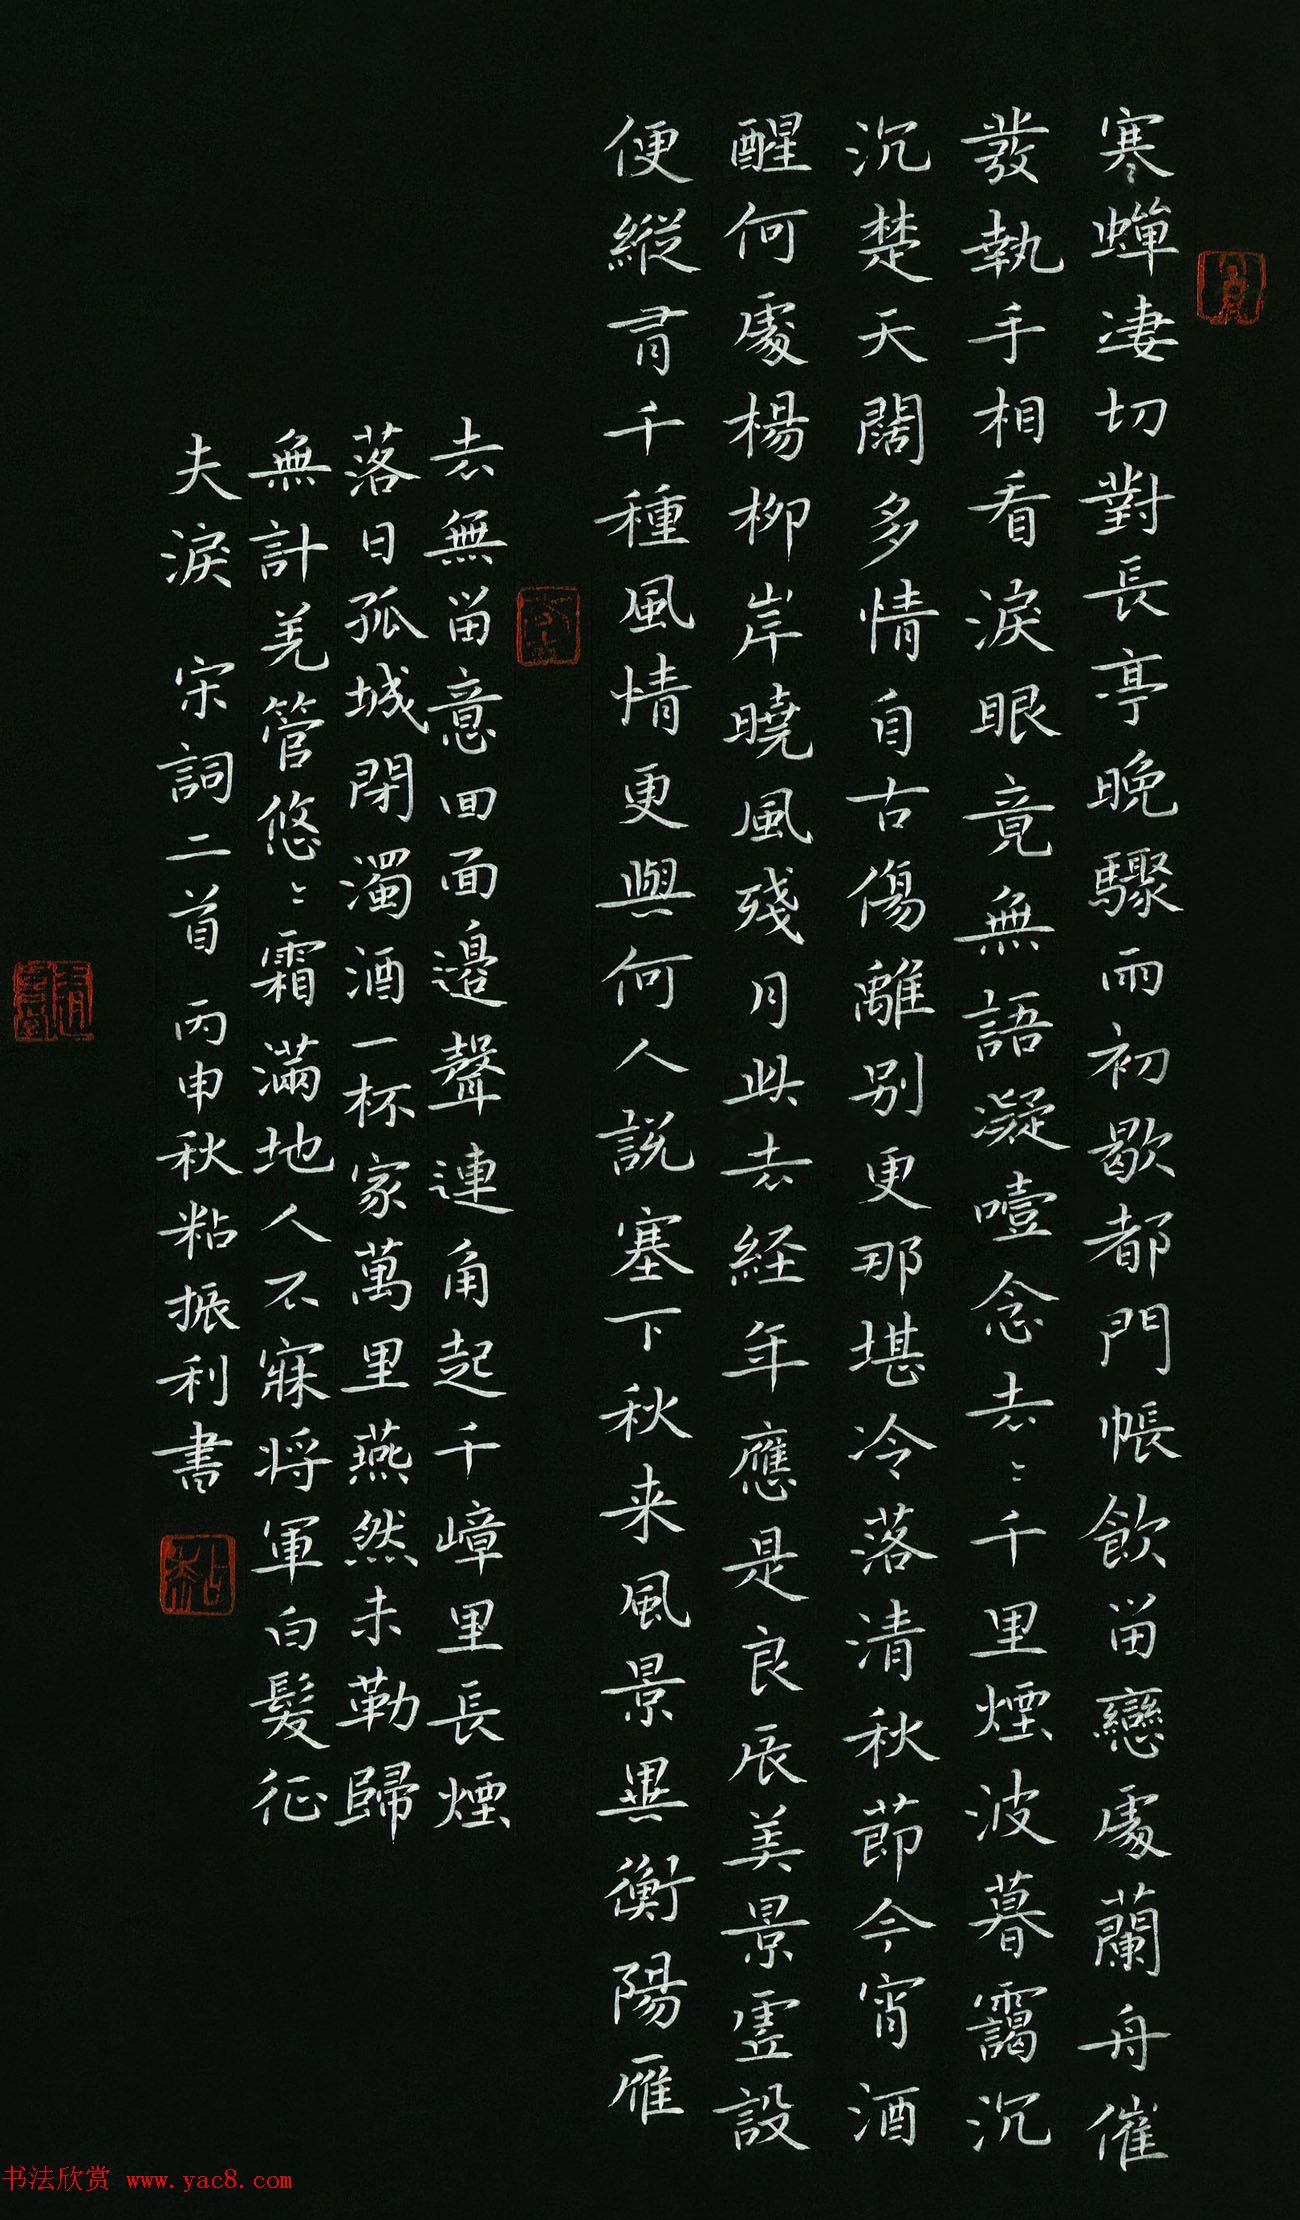 寒蟬淒切對長亭晚驟雨初歇都門帳飲留戀處蘭舟催
發執手相看淚眼竟無語凝噎念去〻千里煙波暮靄沉
沉楚天闊多情自古傷離別更那堪冷落清秋節今宵酒
醒何處楊柳岸曉風殘月此去經年應是良辰美景虛設
便縱有千種風情更與何人說塞下秋来風景異衡陽雁
去無留意四面邊聲連角起千嶂里長煙
落日孤城閉濁酒一杯家萬里燕然未勒歸
無計羌管悠〻霜滿地人不寐將軍白髮征
夫淚 宋詞二首 丙申秋粘振利書
书法欣赏 www.yac8.com